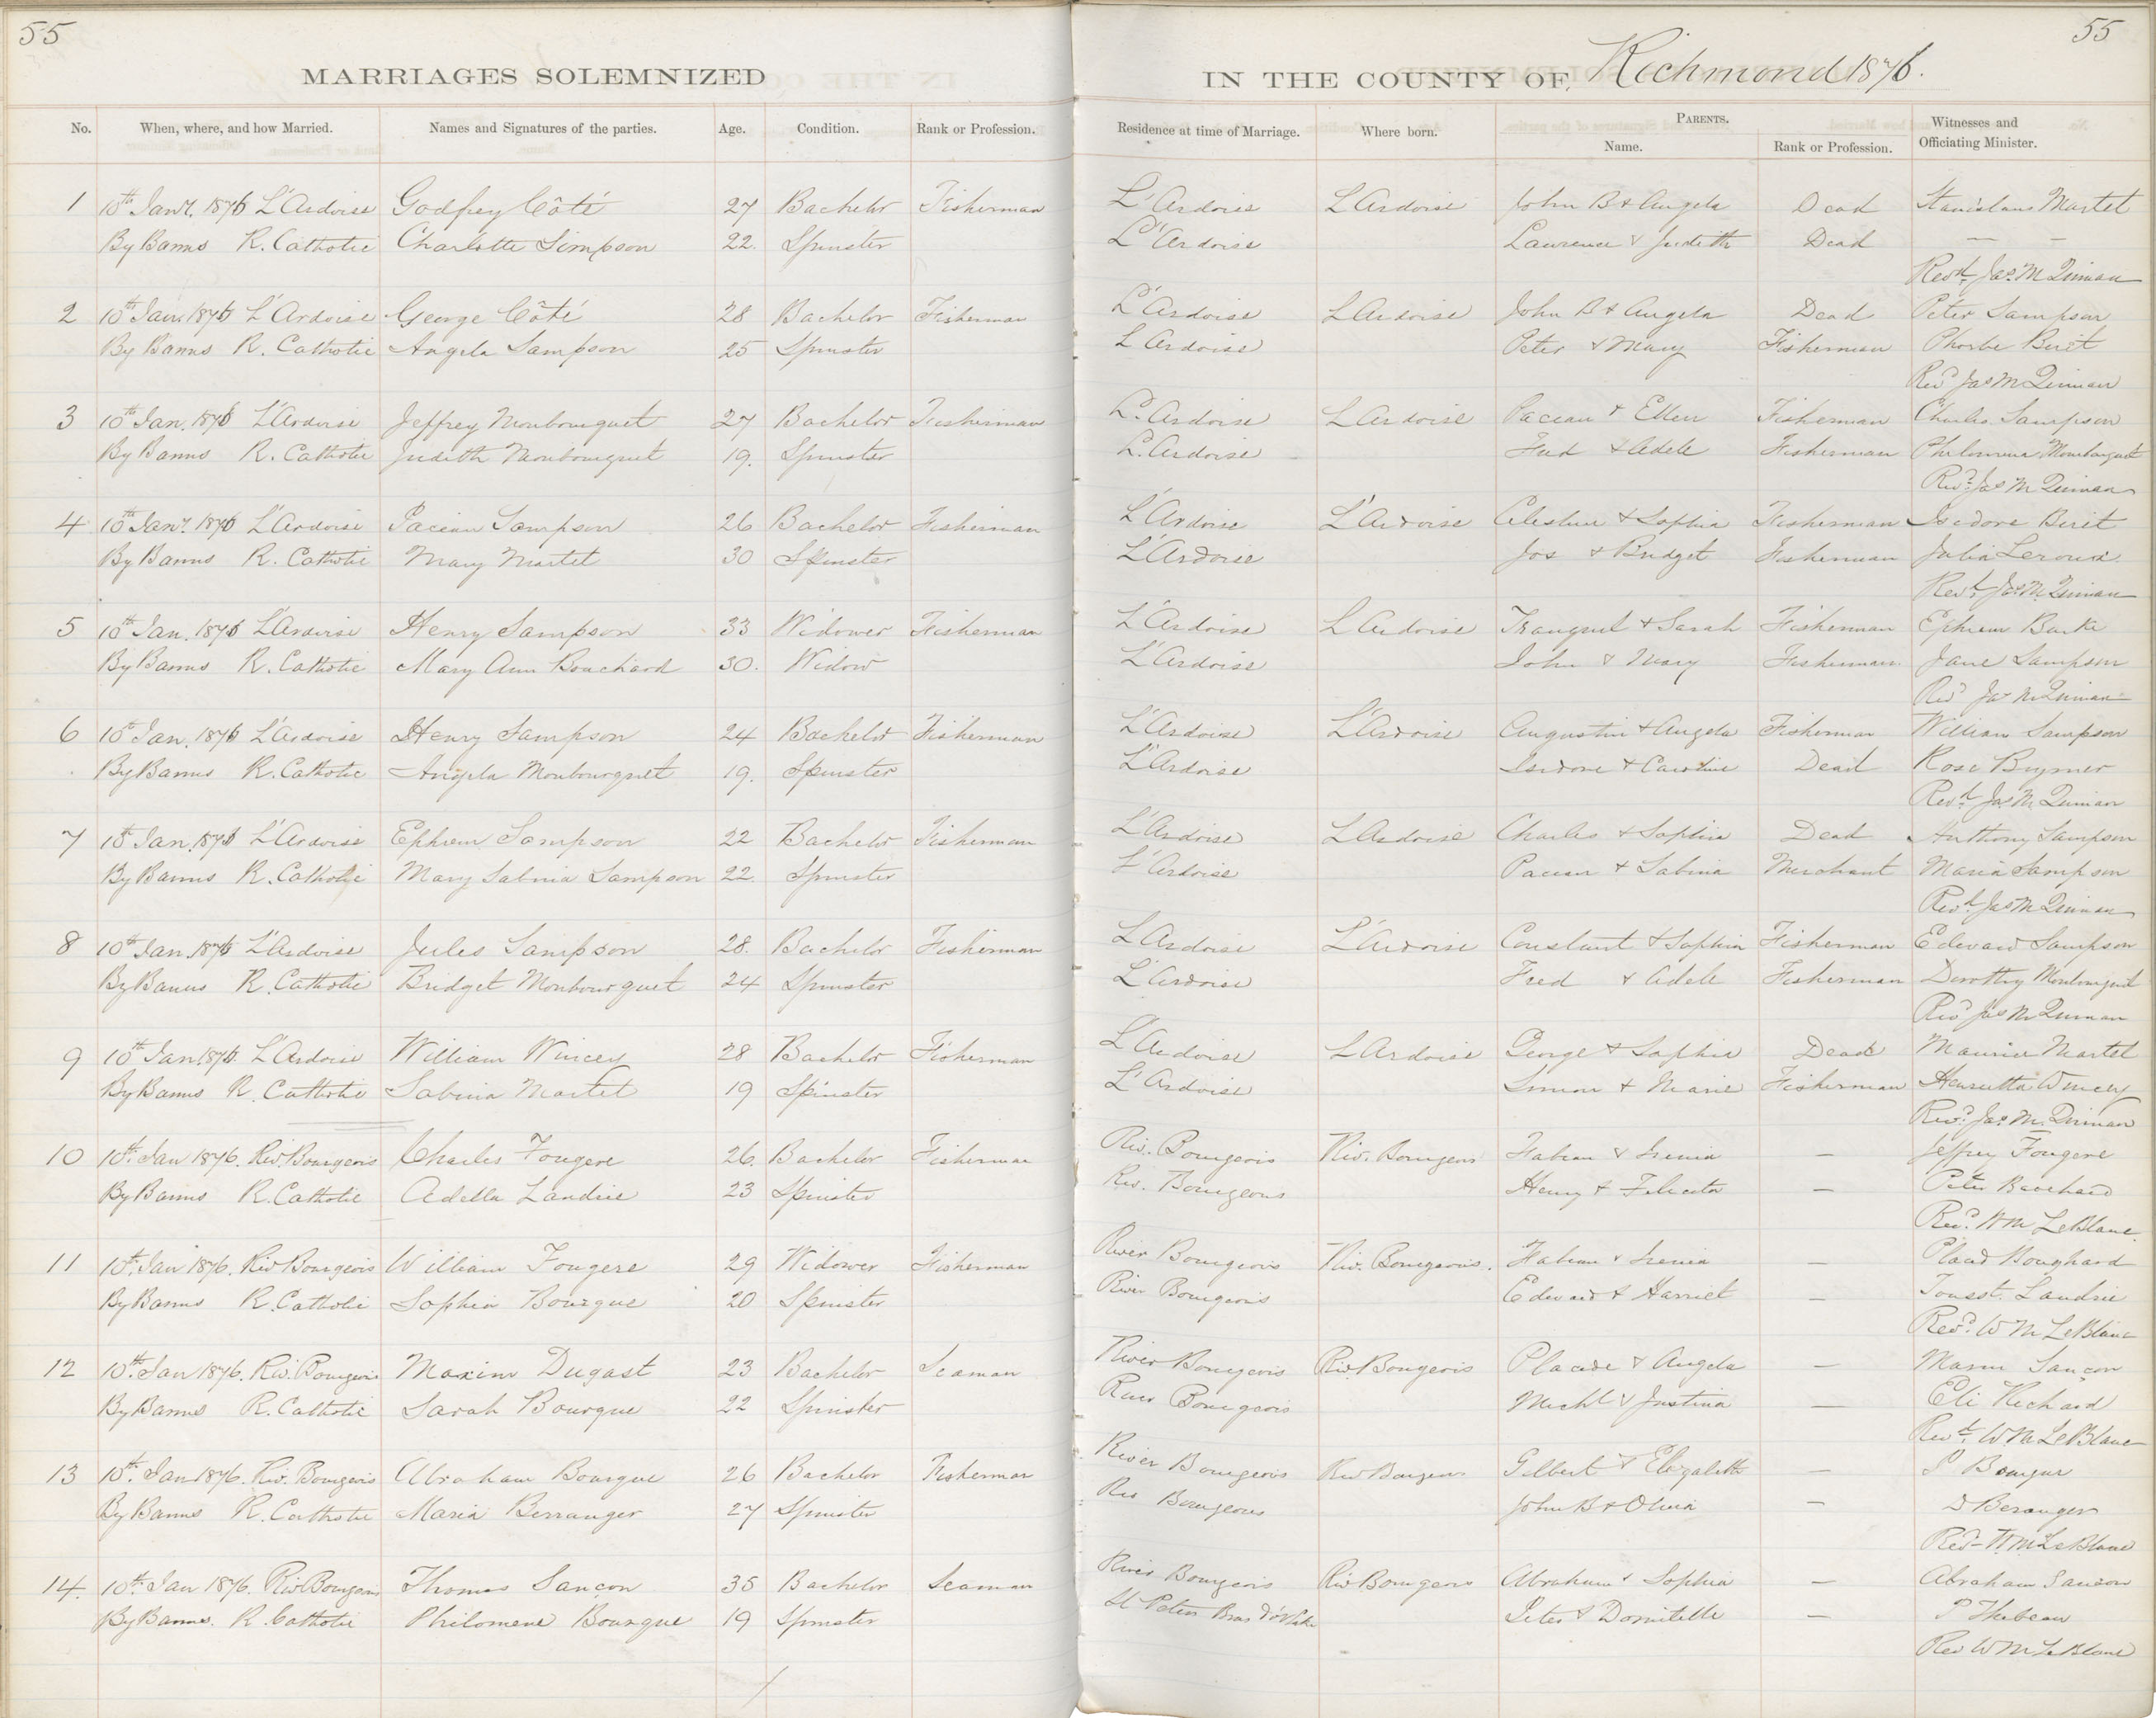 55
55
MARRIAGES SOLEMNIZED IN THE COUNTY OF Richmond 1876.
No. When, where, and how Married. Names and Signatures of the parties. Age. Condition. Rank or Profession. Residence at time of Marriage. Where born. PARENTS. Witnesses and
Name. Rank or Profession. Officiating Minister.
1 10th Jany. 1876 L'Ardoise Godfrey Côté 27 Bachelor Fisherman L'Ardoise L'Ardoise John B & Angela Dead Stanislaus Martet
By Banns R. Catholic Charlotte Simpson 22. Spinster L'Ardoise Lawrence & Judith Dead — —
Revd. Jas. M Quinan
2 10th Jan. 1876 L'Ardoise George Côté 28 Bachelor Fisherman L'Ardoise L'Ardoise John B & Angela Dead Peter Sampson
By Banns R. Catholic Angela Sampson 25 Spinster L'Ardoise Peter & Mary Fisherman Phoebe Birit
Revd Jas M Quinan
3 10th Jan. 1876 L'Ardoise Jeffrey Monbourquet 27 Bachelor Fisherman L'Ardoise L'Ardoise Pacian & Ellen Fisherman Charles Sampson
By Banns R. Catholic Judith Monbourquet 19. Spinster L'Ardoise Fred & Adele Fisherman Philomena Monbourquet
Revd. Jas M Quinan
4 10th Jany. 1876 L'Ardoise Pacian Sampson 26 Bachelor Fisherman L'Ardoise L'Ardoise Celestin & Sophia Fisherman Isidore Birit
By Banns R. Catholic Mary Martet 30 Spinster L'Ardoise Jos & Bridget Fisherman Julia Leroux
Revd. Jas. M. Quinan
5 10th Jan. 1876 L'Ardoise Henry Sampson 33 Widower Fisherman L'Ardoise L'Ardoise Tranquil & Sarah Fisherman Ephrem Burke
By Banns R. Catholic Mary Ann Bouchard 30. Widow L'Ardoise John & Mary Fisherman Jane Sampson
Revd Jas M Quinan
6 10th Jan. 1876 L'Ardoise Henry Sampson 24 Bachelor Fisherman L'Ardoise L'Ardoise Augustin & Angela Fisherman William Sampson
By Banns R. Catholic Angela Monbourquet 19. Spinster L'Ardoise Isidore & Caroline Dead Rose Brymer
Revd. Jas M. Quinan
7 10th Jan. 1876 L'Ardoise Ephrem Sampson 22 Bachelor Fisherman L'Ardoise L'Ardoise Charles & Sophia Dead Anthony Sampson
By Banns R. Catholic Mary Sabina Sampson 22. Spinster L'Ardoise Pacian & Sabina Merchant Maria Sampson
Revd. Jas M Quinan
8 10th Jan. 1876 L'Ardoise Jules Sampson 28. Bachelor Fisherman L'Ardoise L'Ardoise Constant & Sophia Fisherman Edward Sampson
By Banns R. Catholic Bridget Monbourquet 24 Spinster L'Ardoise Fred & Adele Fisherman Dorothy Monbourquet
Revd Jas M Quinan
9 10th Jan 1876. L'Ardoise William Wincey 28 Bachelor Fisherman L'Ardoise L'Ardoise George & Sophia Dead Maurice Martet
By Banns R. Catholic Sabina Martet 19 Spinster L'Ardoise Simon & Marie Fisherman Henrietta Wincey
Revd. Jas. M. Quinan
10 10th. Jan 1876. Riv. Bourgeois Charles Fougere 26. Bachelor Fisherman Riv. Bourgeois Riv. Bourgeois Fabian & Irenia — Jeffrey Fougere
By Banns R. Catholic Adella Landrie 23 Spinster Riv. Bourgeois Henry & Felicite — Peter Bouchard
Revd. Wm LeBlanc
11 10th. Jan 1876. Riv Bourgeois William Fougere 29 Widower Fisherman River Bourgeois Riv. Bourgeois. Fabian & Irenia — Placid Boughard
By Banns R. Catholic Sophia Bourque 20 Spinster River Bourgeois Edward & Harriet — Tousst. Landrie
Revd. Wm LeBlanc
12 10th. Jan 1876. Riv. Bourgeois Maxim Dugast 23 Bachelor Seaman River Bourgeois Riv. Bourgeois Placide & Angela — Sançon
By Banns R. Catholic Sarah Bourque 22 Spinster River Bourgeois Michl & Justina — Eli Richard
Revd. Wm LeBlanc
13 10th. Jan 1876. Riv. Bourgeois Abraham Bourque 26 Bachelor Fisherman River Bourgeois Riv Bourgeois Gilbert & Elizabeth — P Bourque
By Banns R. Catholic Maria Berranger 27 Spinster Riv Bourgeois John B & Olivia — D Beranger
Revd Wm LeBlanc
14. 10th. Jan 1876. Riv Bourgeois Thomas Sançon 35 Bachelor Seaman River Bourgeois Riv Bourgeois Abraham & Sophia — Abraham Sancon
By Banns. R. Catholic Philomene Bourque 19 Spinster St Peters Bras d'or Lake Peter & Domitille — P Thibeau
Rev Wm LeBlanc